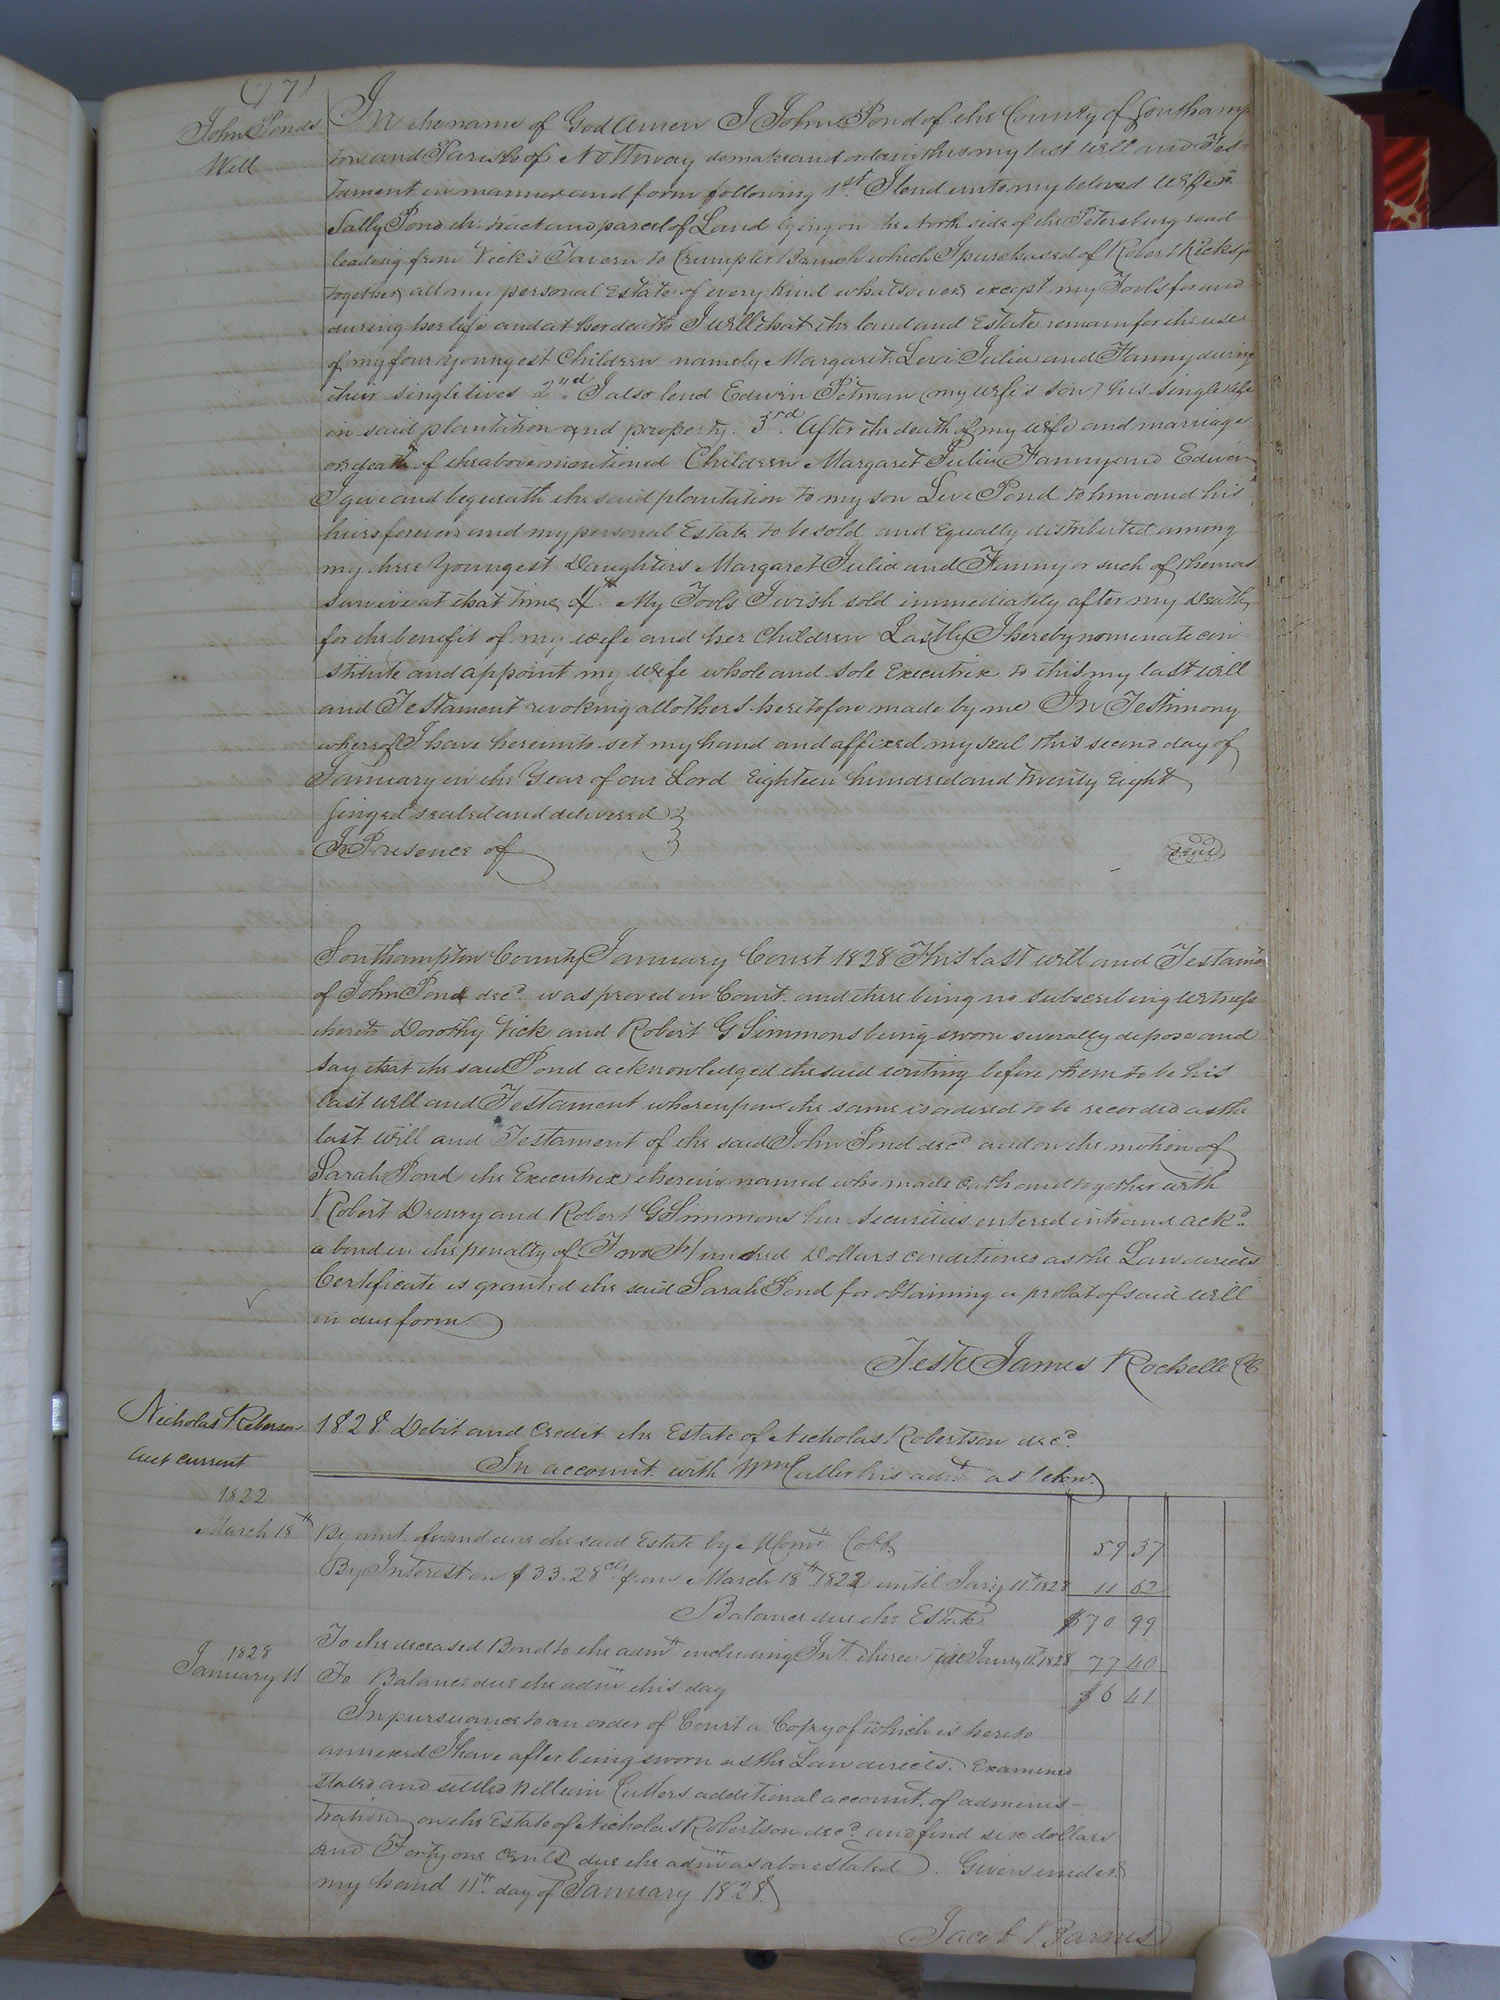 (77)
John Ponds
Will
In the name of God Amen I John Pond of the County of Southamp
ton and Parish of Nottoway do make and ordain this my last will and Tes
tament in manner and form following 1st. I lend unto my beloved Wife
Sally Pond the tract and parcel of Land lying on the North side of the Petersburg road
leading from Vick's Tavern to Crumpler Branch which I purchased of Robert Ricks
together all my personal Estate of every kind whatsoever except my Tools for and
during her life and at her death I will that the land and Estate remain for the use
of my four youngest Children namely Margaret, Levi Julia and Fanny during
their single lives 2nd I also lend Edwin Pitman (my wife's son) his single life
in said plantation and property. 3rd. After the death of my wife and marriage
or death of the above mentioned Children Margaret Julia Fanny and Edwin
I give and bequeath the said plantation to my son Levi Pond to him and his
heirs forever and my personal Estate to be sold and Equally distributed among
my three Youngest Daughters Margaret Julia and Fanny or such of them as
survive at that time, 4th My Tools I wish sold immediately after my Death,
for the benefit of my wife and her Children Lastly I hereby nominate con
stitute and appoint my Wife whole and sole Executrix to this my last will
and Testament revoking all others heretofore made by me In Testimony
whereof I have hereunto set my hand and affixed my seal this second day of
January in the Year of our Lord Eighteen hundred and twenty Eight
Singed sealed and delivered }
In Presence of
Seal
Southampton County January Court 1828 This last will and Testamen
of John Pond decd. was proved in Court and there being no subscribing witness
thereto Dorothy Vick and Robert G Simmons being sworn severally depose and
say that the said Pond acknowledged the said writing before them to be his
last will and Testament whereupon the same is ordered to be recorded as the
last Will and Testament of the said John Pond decd and on the motion of
Sarah Pond the Executrix therein named who made oath and together with
Robert Drewry and Robert G Simmons her Securities entered into and ackd.
a bond in the penalty of Two Hundred Dollars conditioned as the Law directs
Certificate is granted the said Sarah Pond for obtaining a probat of said will
in due form
Teste James Rochelle CC
Nicholas Roberson
acct current
1828. Debit and Credit the Estate of Nicholas Robertson decd.
In account with Wm Cutler his admr as below.
1822
March 18th By amt. found due the said Estate by Cobb 59 37
By Interest on $33.28cts from March 18th 1822 until Jany 11th 1828 11 62
Balance due the Estate $70 99
1828
To the deceased Bond to the admr including Int. thereon Jany 11th 1828 77 40
January 11 To Balance due the admr this day $6 41
In pursuance to an order of Court a Copy of which is hereto
annexed I have after being sworn as the Law directs. Examined
stated and settled William Cutlers additional account of adminis-
tration, on the Estate of Nicholas Robertson decd and find six dollars
and Forty one Cents due the admr as above stated. Given under
my hand 11th day of January 1828.
Jacob Barnes